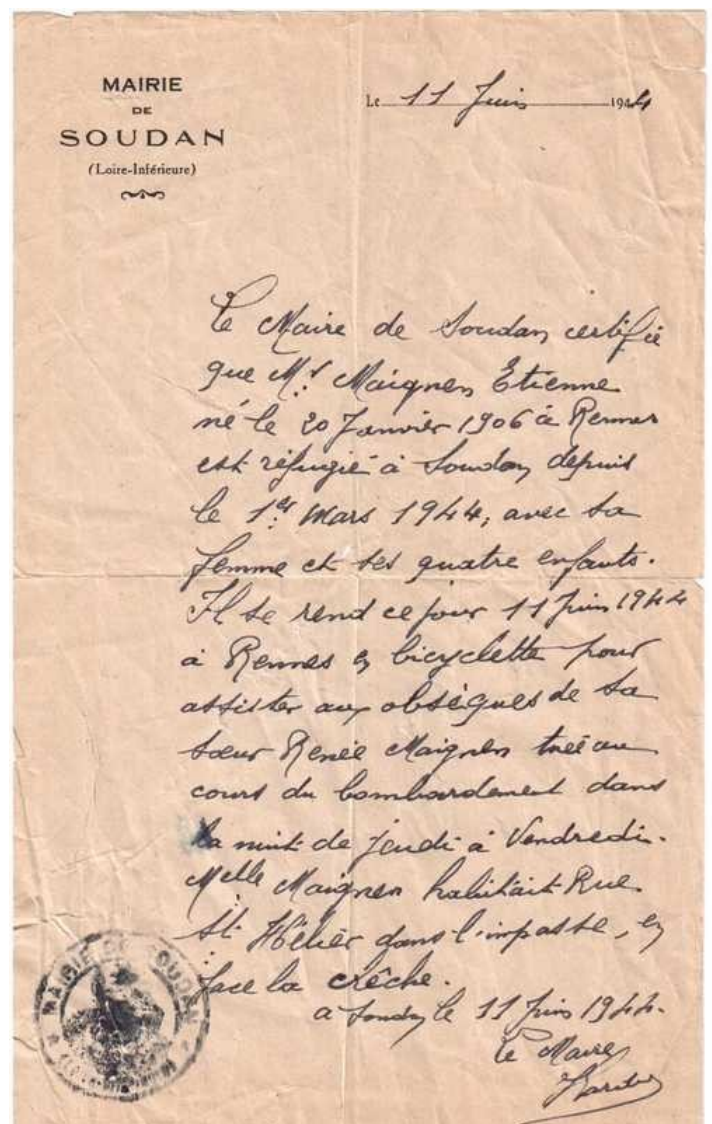 MAIRIE
DE
SOUDAN
(Loire-Inférieure)
Le 11 Juin 1944
Le Maire de Soudan certifie
que Mr Maignen Etienne
né le 20 Janvier 1906 à Rennes
est réfugié à Soudan depuis
le 1er Mars 1944, avec sa
femme et ses quatre enfants.
Il se rend ce jour 11 Juin 1944
à Rennes en bicyclette pour
assister aux obsèques de sa
sœur Renée Maignen tuée au
cours du bombardement dans
la nuit de jeudi à Vendredi.
Melle Maignen habitait Rue
St Hélier dans l'impasse, en
face la crêche.
a Soudan le 11 Juin 1944.
Le Maire
MAIRIE DE SOUDAN